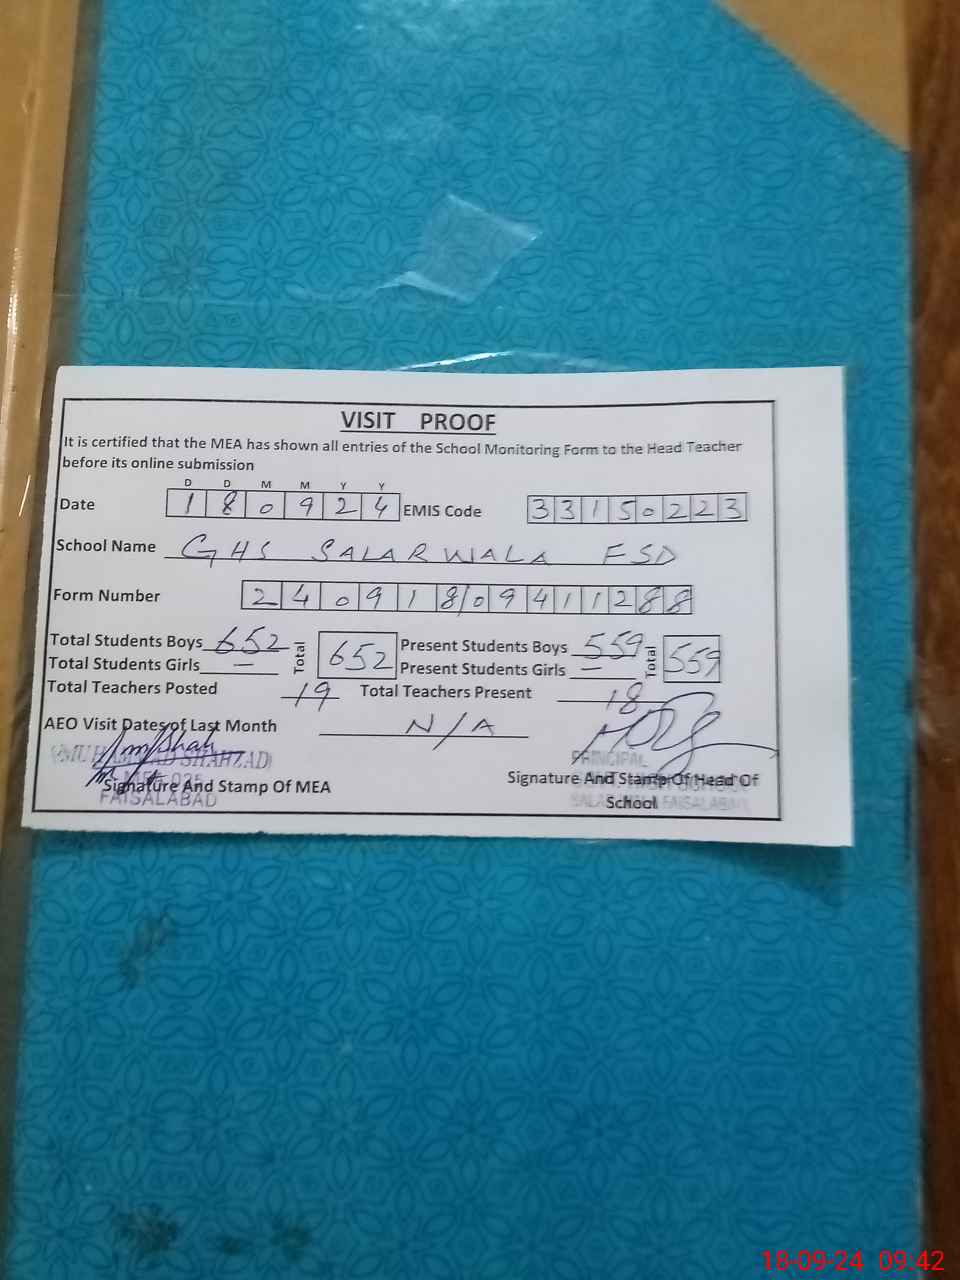 VISIT PROOF
It is certified that the MEA has shown all entries of the School Monitoring Form to the Head Teacher
before its online submission
D D M M Y Y
Date 1 8 0 9 2 4 EMIS Code 3 3 1 5 0 2 2 3
School Name GHS SALARWALA FSD
Form Number 2 4 0 9 1 8 0 9 4 1 1 2 8 8
Total Students Boys 652 Total 652 Present Students Boys 559 Total 559
Total Students Girls — Present Students Girls —
Total Teachers Posted 19 Total Teachers Present 18
AEO Visit Dates of Last Month N/A
(MUHAMMAD SHAHZAD)
MEA 025
FAISALABAD
Signature And Stamp Of MEA
PRINCIPAL
SALARWALA FAISALABAD
Signature And Stamp Of Head Of
School
18-09-24 09:42